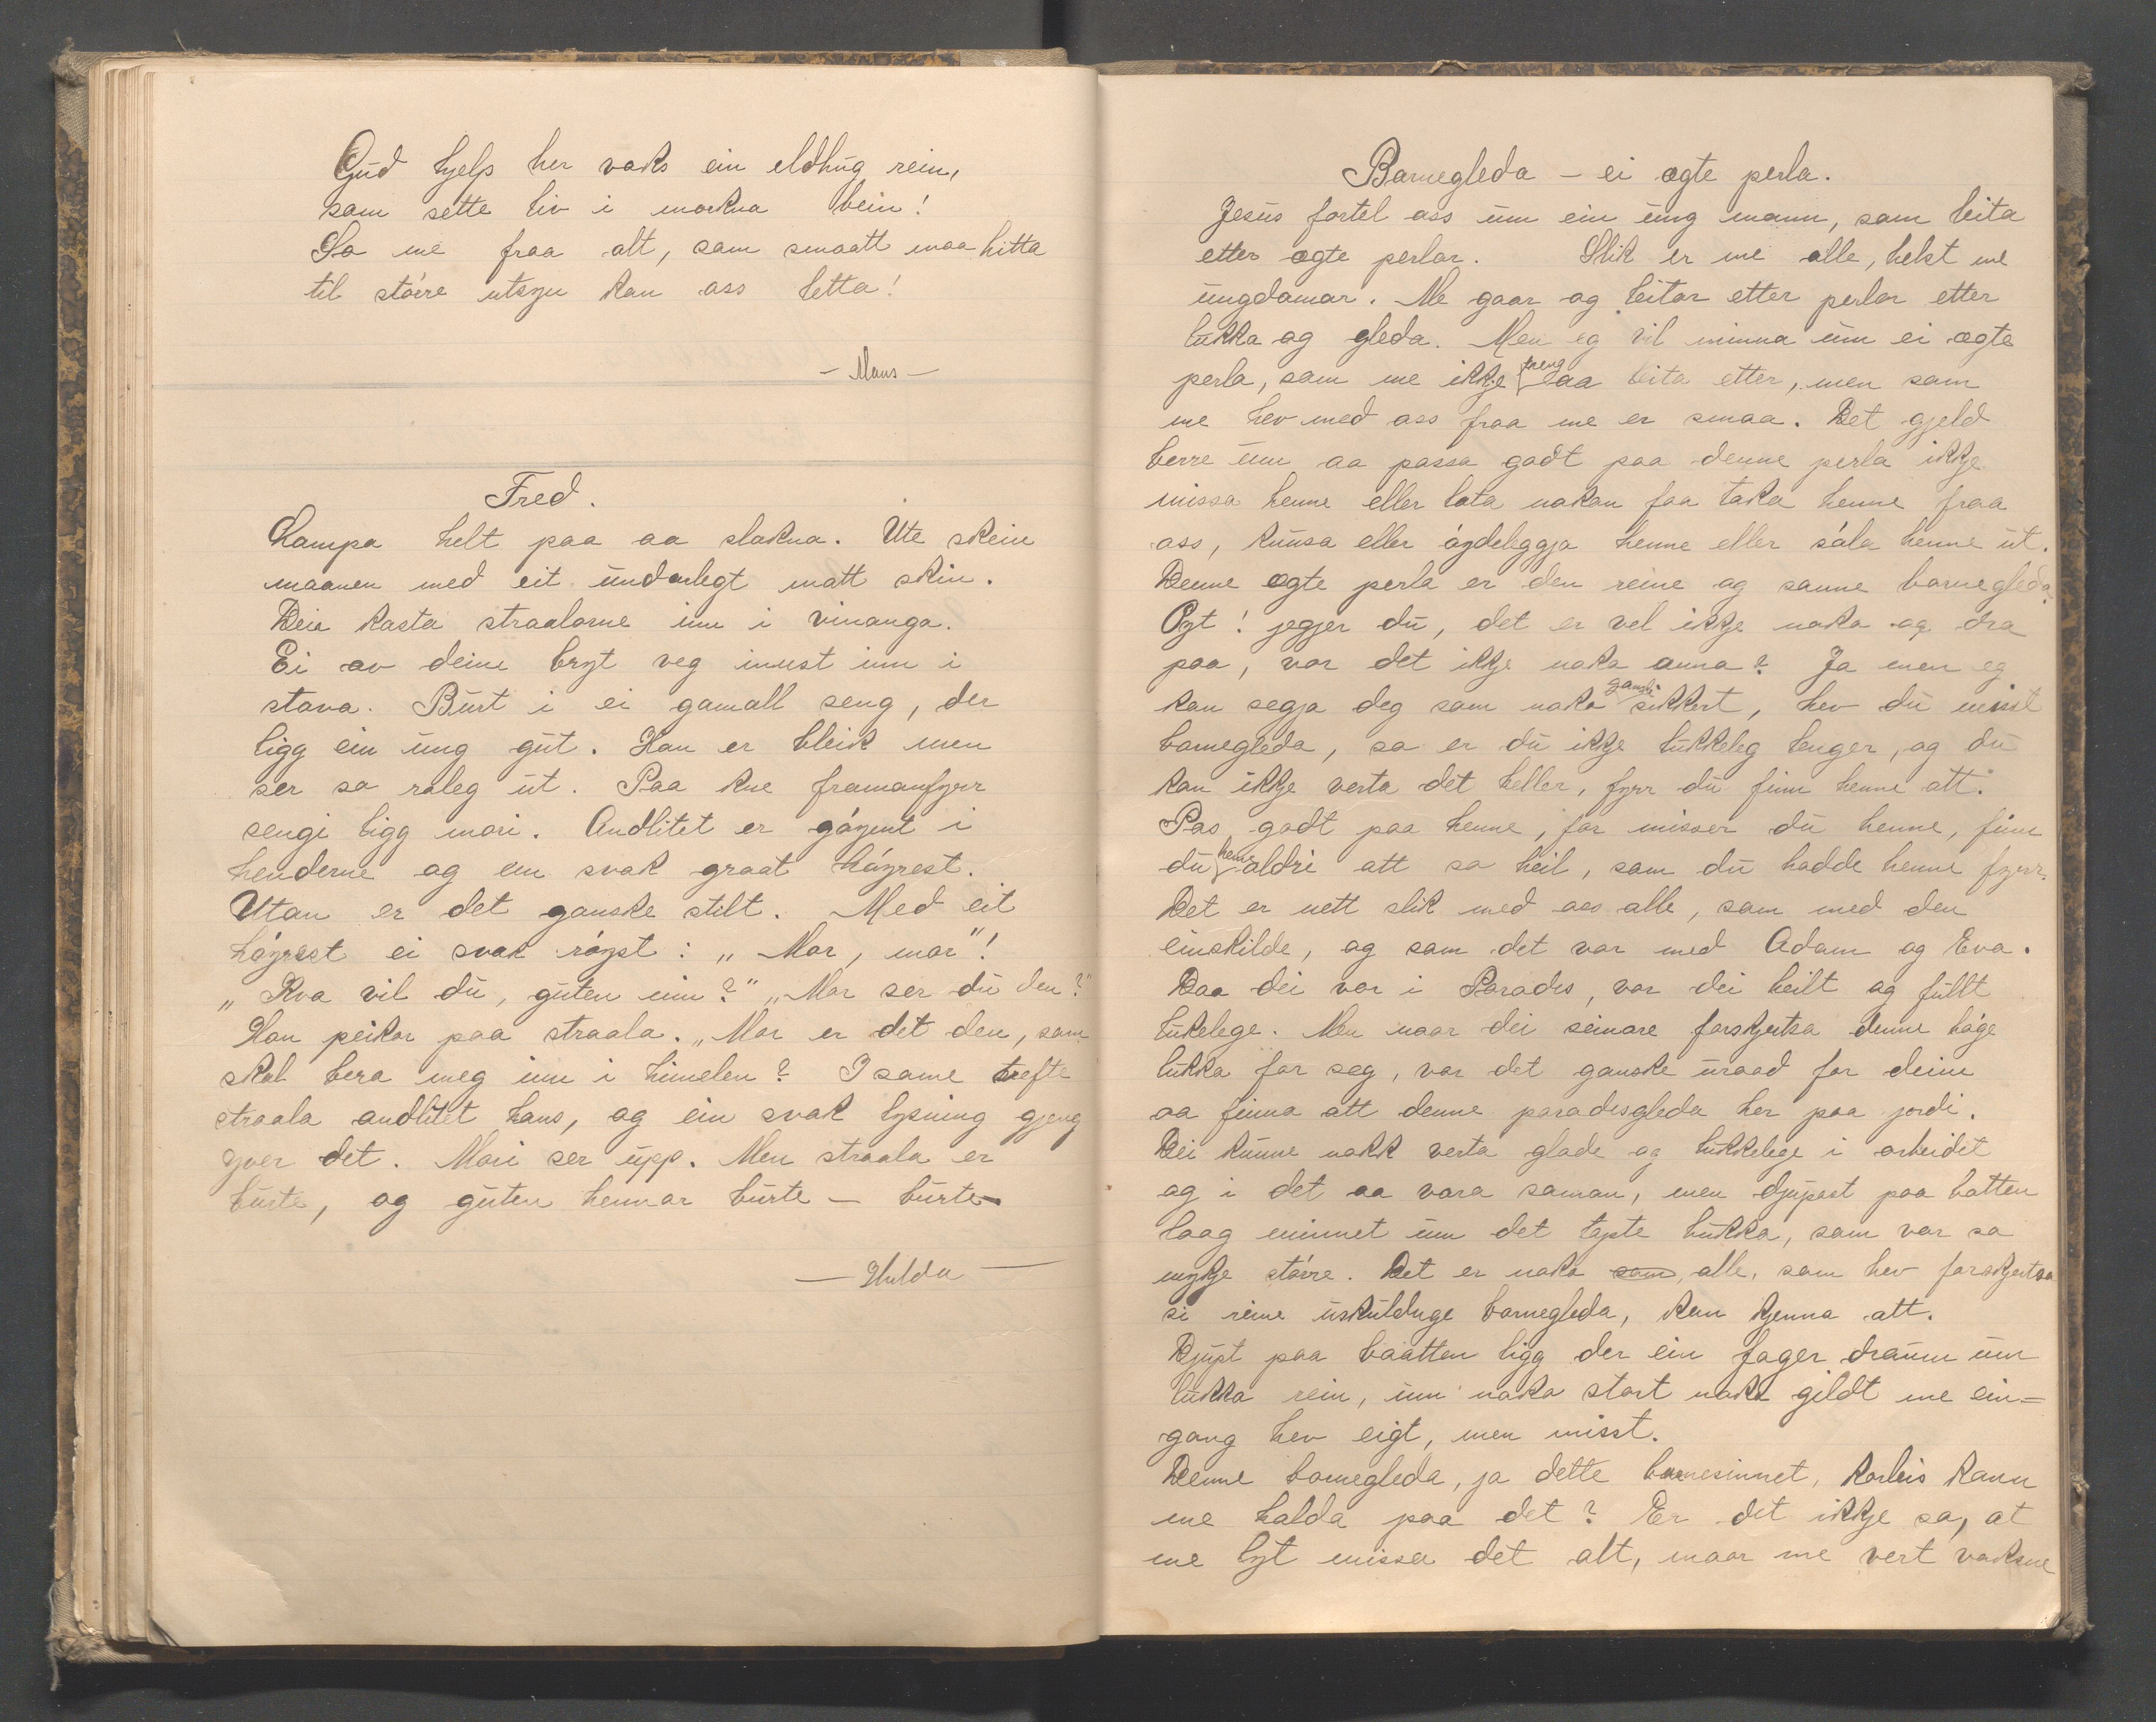 Gud hjelp her vaks ein eldhug rein,
som sette liv i morkna bein!
So me fraa alt, som smaatt maa hitta
til større utsyn kan oss letta!
- Mans -
Fred.
Lampa helt paa aa slokna. Ute skein
maanen med eit underlegt matt skin.
Dei kasta straalarne inn i vinanga.
Ei av deine bryt veg inust inn i
stova. Burt i ei gamall seng, der
ligg ein ung gut. Han er bleik men
ser so roleg ut. Paa kne framanfyrr
sengi ligg mori. Andlitet er gøymt i
henderne og ein svak graat høyrest.
Utan er det ganske stilt. Med eit
høyrest ei svak røyst: „Mor, mor"!
„Kva vil du, guten min?" „Mor ser du den?"
Han peikar paa straala. „Mor er det den, som
skal bera meg inn i himelen? I same trefte
straala andlitet hans, og ein svak lysning gjeng
yver det. Mori ser upp. Men straala er
burte, og guten hennar burte – burte –
— Hulda —
Barnegleda – ei ægte perla.
Jesus fortel oss um ein ung mann, som leita
etter ægte perlor. Slik er me alle, helst me
ungdomar. Me gaar og leitar etter perlor etter
lukka og gleda. Men eg vil minna um ei ægte
perla, som me ikkje treng aa leita etter, men som
me hev med oss fraa me er smaa. Det gjeld
berre um aa passa godt paa denne perla ikkje
missa henne eller lata nokon faa taka henne fraa
oss, knusa eller øydeleggja henne eller sóla henne ut.
Denne ægte perla er den reine og sanne barnegleda.
Pyt! segjer du, det er vel ikkje noko aa dra
paa, var det ikkje noko anna? Ja men eg
kan segja deg som noko ganske sikkert, hev du misst
barnegleda, so er du ikkje lukkeleg lenger, og du
kan ikkje verta det heller, fyrr du finn henne att.
Pas godt paa henne, for misser du henne, finn
du henne aldri att so heil, som du hadde henne fyrr.
Det er nett slik med oss alle, som med den
einskilde, og som det var med Adam og Eva.
Daa dei var i Paradis, var dei heilt og fullt
lukelege. Men naar dei seinare forskjertsa denne høge
lukka for seg, var det ganske uraad for deim
aa finna att denne paradisgleda her paa jordi.
Dei kunne nokk verta glade og lukkelege i arbeidet
og i det aa vara saman, men djupast paa botten
laag minnet um det tapte lukka, som var so
mykje større. Det er noko som alle, som hev forskjertsa
si reine uskulduge barnegleda, kan kjenna att.
Djupt paa baatten ligg der ein fager draum um
lukka rein, um noko stort noko gildt me ein=
gong hev eigt, men misst.
Denne barnegleda, ja dette barnesinnet, korleis kann
me halda paa det? Er det ikkje so, at
me lyt missa det alt, naar me vert vaksne